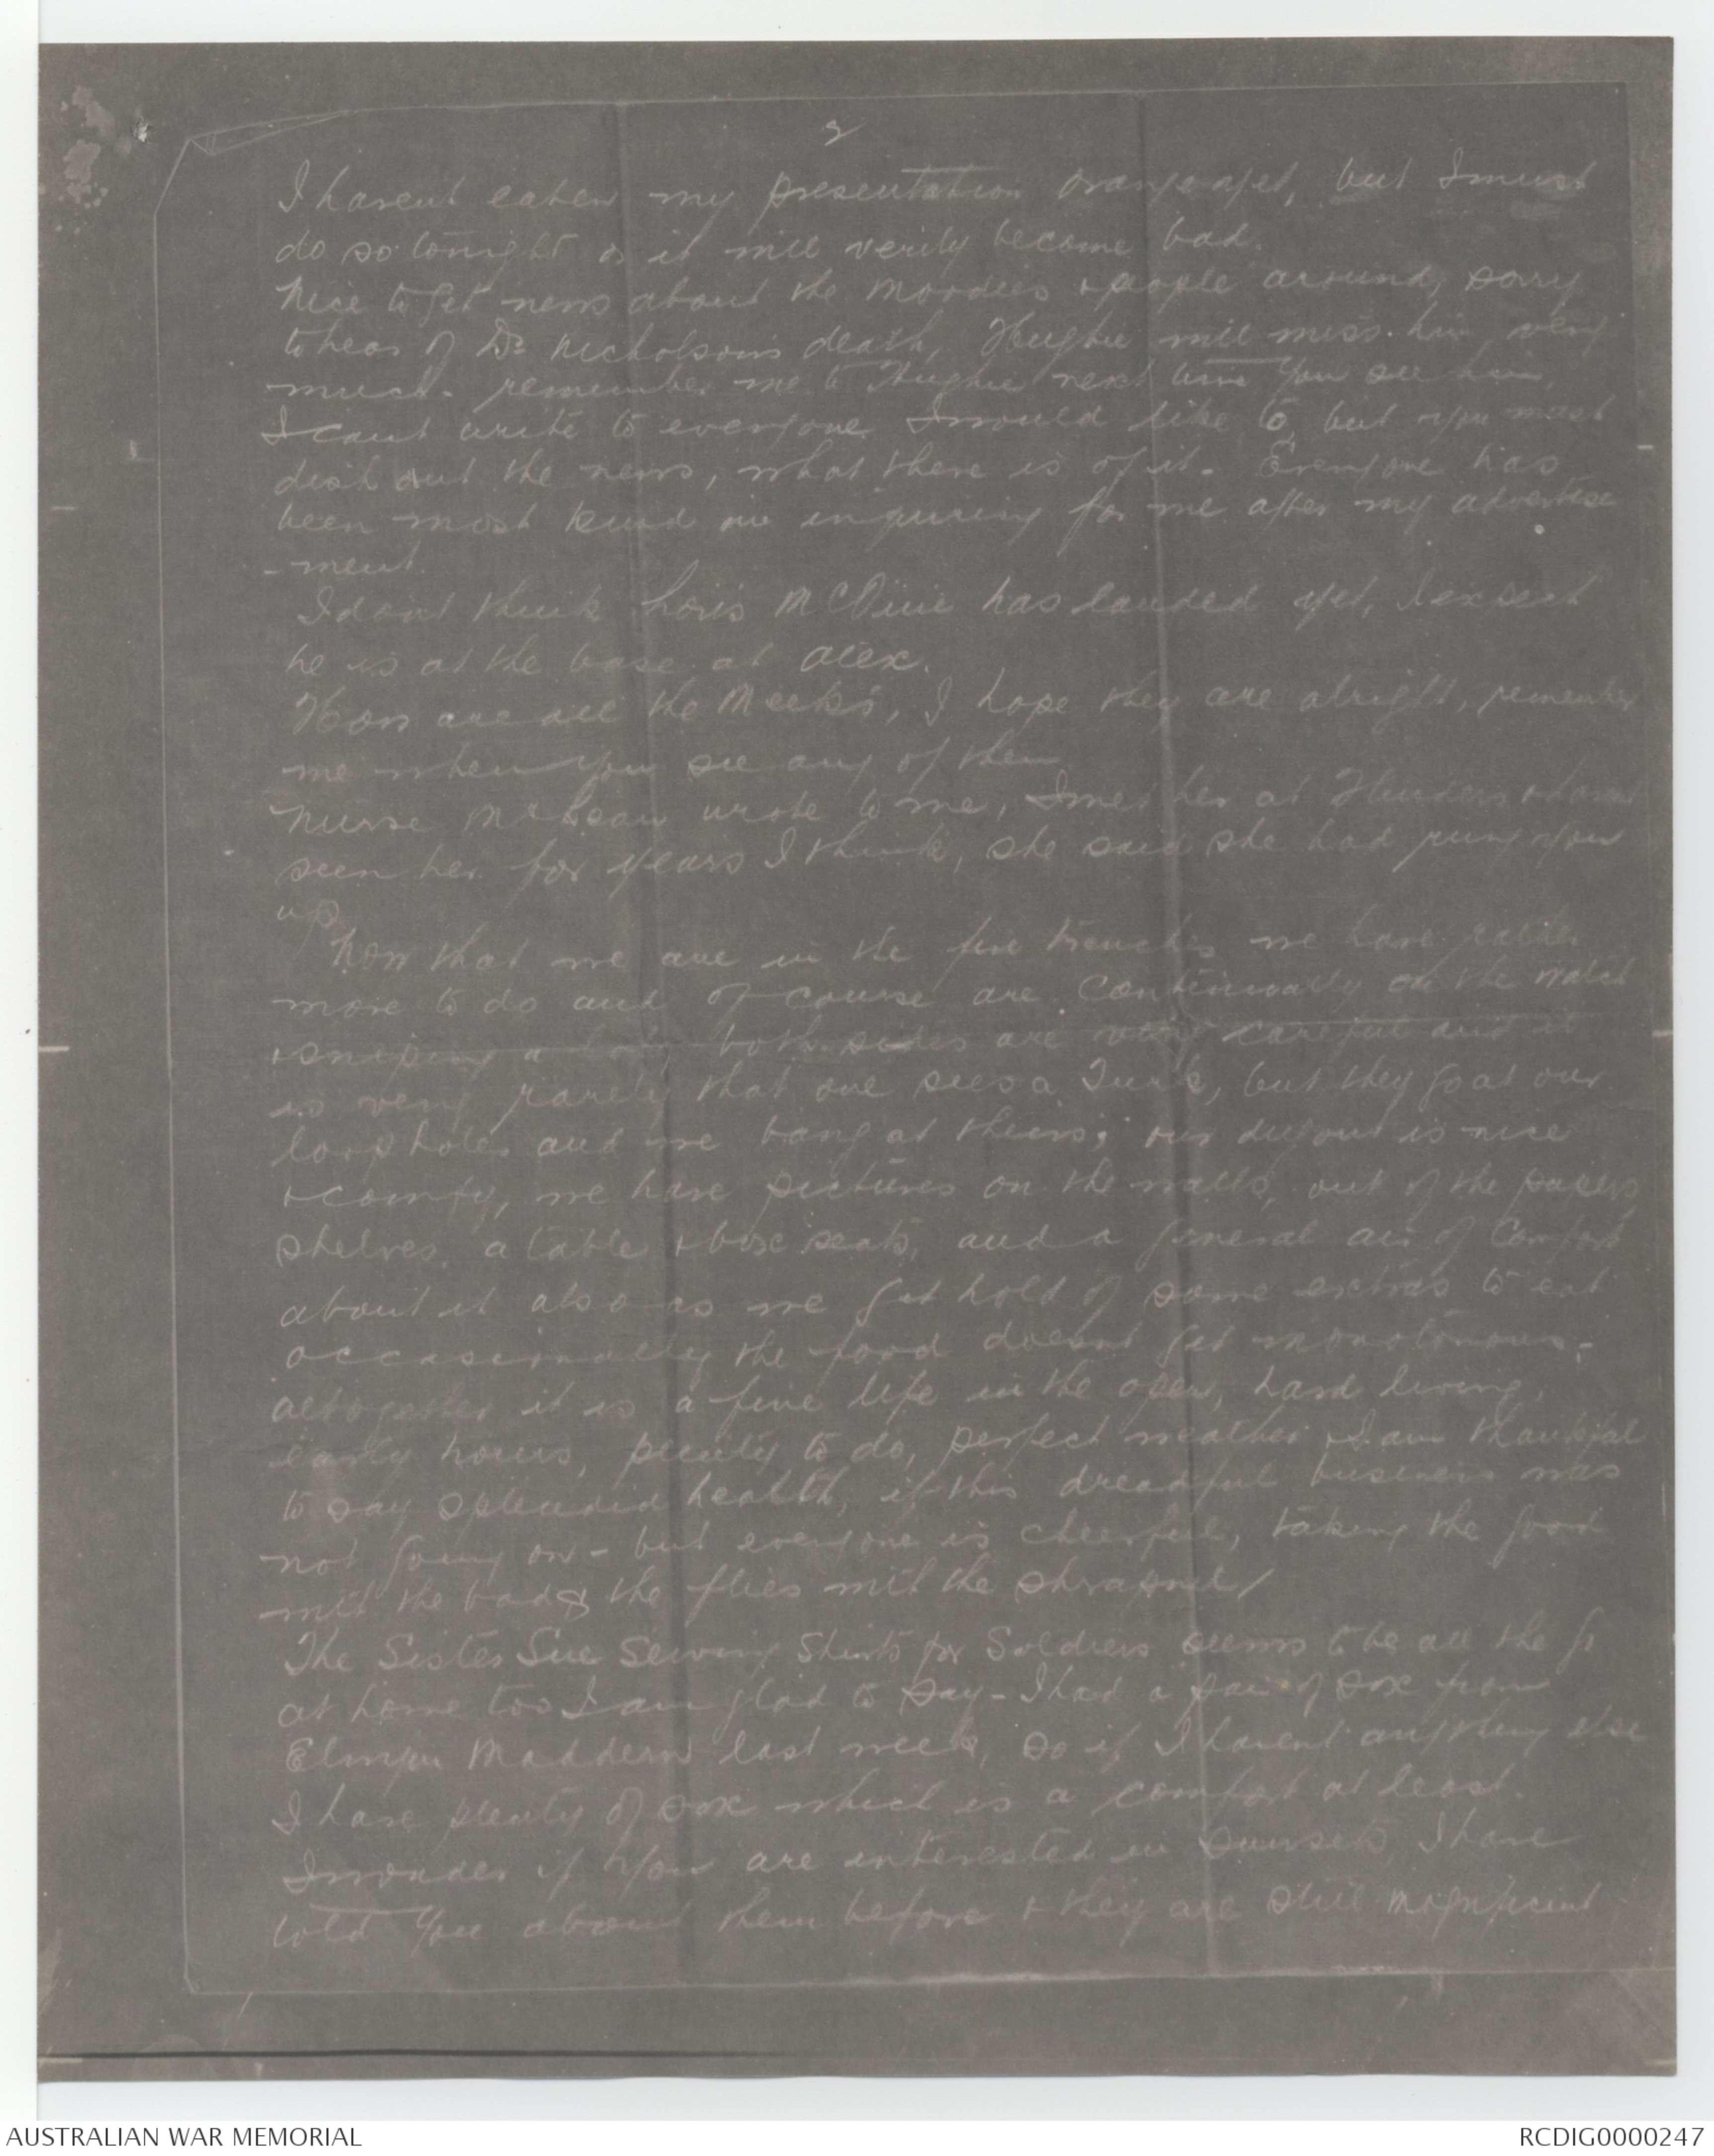 2
I havent eaten my presentation orange yet, but I must
do so tonight or it will verily become bad.
Nice to get news about the Moodies & people around, sorry
to hear of Dr Nicholson's death, Hughie will miss him very
much - remember me to Hughie next time you see him,
I cant write to everyone I would like to, but you must
dish out the news, what there is of it. Everyone has
been most kind in inquiring for me after my advertise
- ment.
I dont think has landed yet, I expect
he is at the base at Alex.
How are all the Meeks, I hope they are alright, remember
me when you see any of them
Nurse McLean wrote to me, I met her at Flinders & havent
seen her for years I think, she said she had rung you
up
Now that we are in the fire trenches we have rather
more to do and of course are continually on the watch
& sniping a bit both sides are very careful and it
is very rarely that one sees a Turk, but they go at our
loop holes and we bang at theirs; our dugout is nice
& comfy, we have pictures on the walls, out of the papers
shelves, a table & box seats, and a general air of comfort
about it also as we get hold of some extras to eat
occasionally the food doesnt get monotonous -
altogether it is a fine life in the open, hard living,
early hours, plenty to do, perfect weather & I am thankful
to say splendid health, if this dreadful business was
not going on - but everyone is cheerful, taking the good
with the bad & the flies with the shrapnel/
The Sister Sue Sewing Shirts for Soldiers seems to be all the go
at home too I am glad to say - I had a pair of sox from
Maddern last week, so if I havent anything else
I have plenty of sox which is a comfort at least.
I wonder if you are interested in sunsets, I have
told you about them before & they are still magnificent